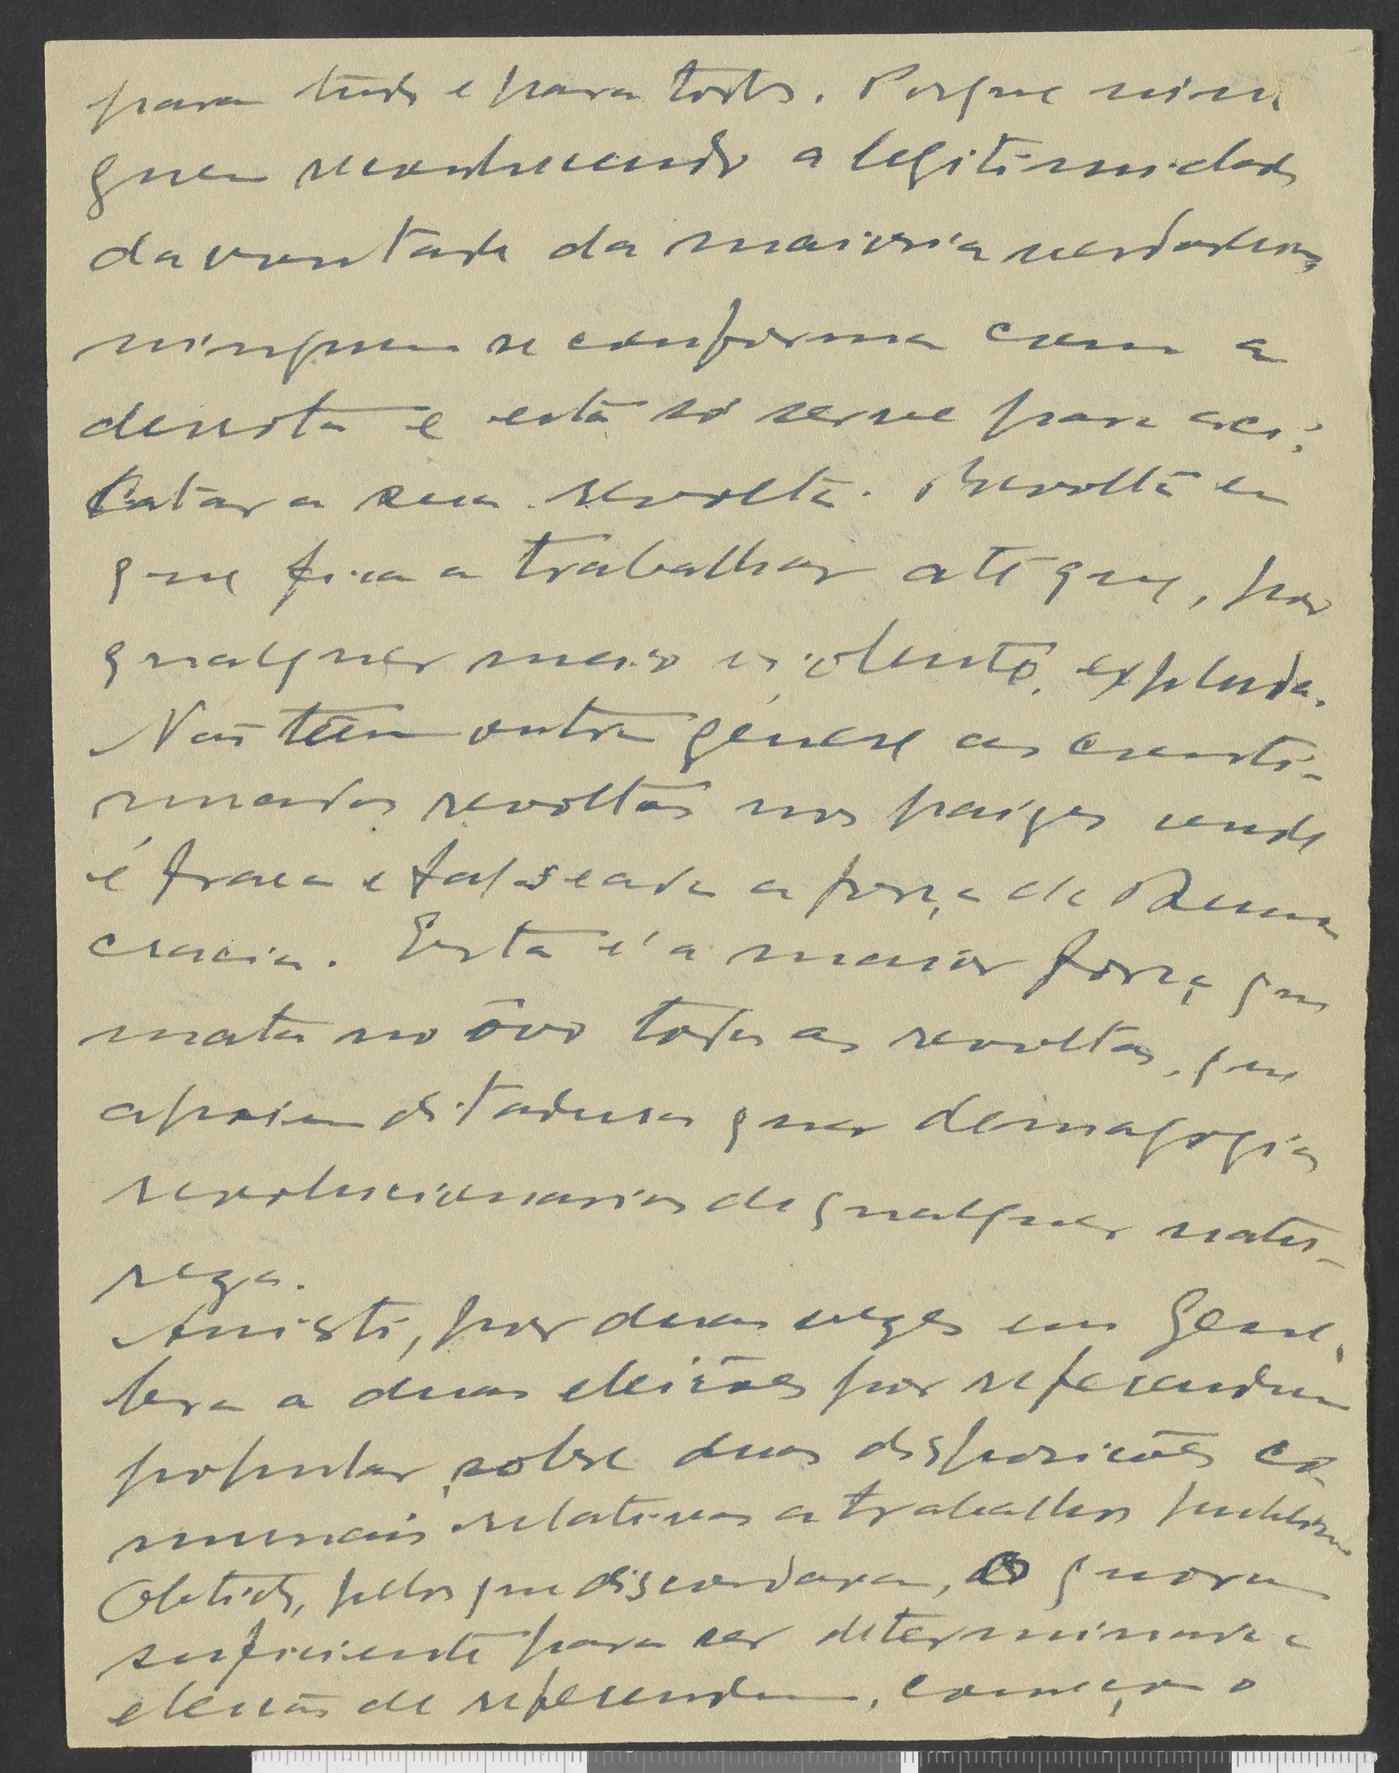 para tudo e para todos. Porque nin-
guem reconhecendo a legitimidade
da vontade da maioria verdadeira,
ninguem se conforma com a
derrota e esta só serve para
a sua revolta. Revolta em
que fica a trabalhar até que, por
qualquer meio violento, expluda.
Não têem outra génese as conti-
nuadas revoltas nos paizes onde
é fraca e falseada a força da Demo
cracia. Esta é a maior força que
mata no ôvo todas as revoltas, que
apoiem ditaduras quer demagogias
revolucionarias de qualquer natu-
reza.
Assisti, por duas vezes em Gene-
bra a duas eleições por referendum
popular, sobre duas disposições co-
munais relativas a trabalhos publicos
Obtido, pelos que discordavam, o quorum
suficiente para ser determinada a
eleição de referendum, começou o